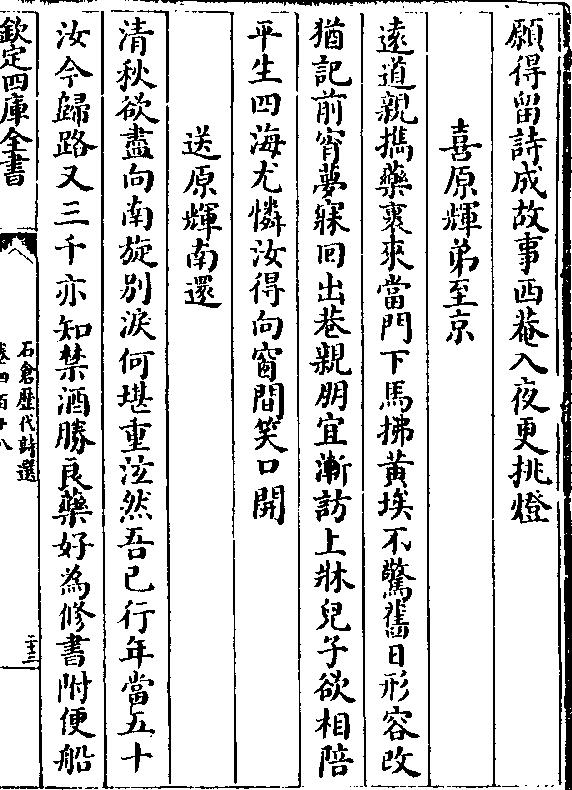 願得留詩成故事西菴入夜更挑燈
喜原輝弟至京
遠道親攜藥裹來當門下馬拂黃埃不驚舊日形容改
猶記前宵夢寐回出巷親朋宜漸訪上牀兒子欲相陪
平生四海尤憐汝得向窗間笑口開
送原輝南還
清秋欲盡向南旋別淚何堪重泫然吾已行年當五十
汝今歸路又三千亦知禁酒勝良藥好為修書附便船
欽定四庫全書
石倉歷代詩選
卷四百十八
二十三